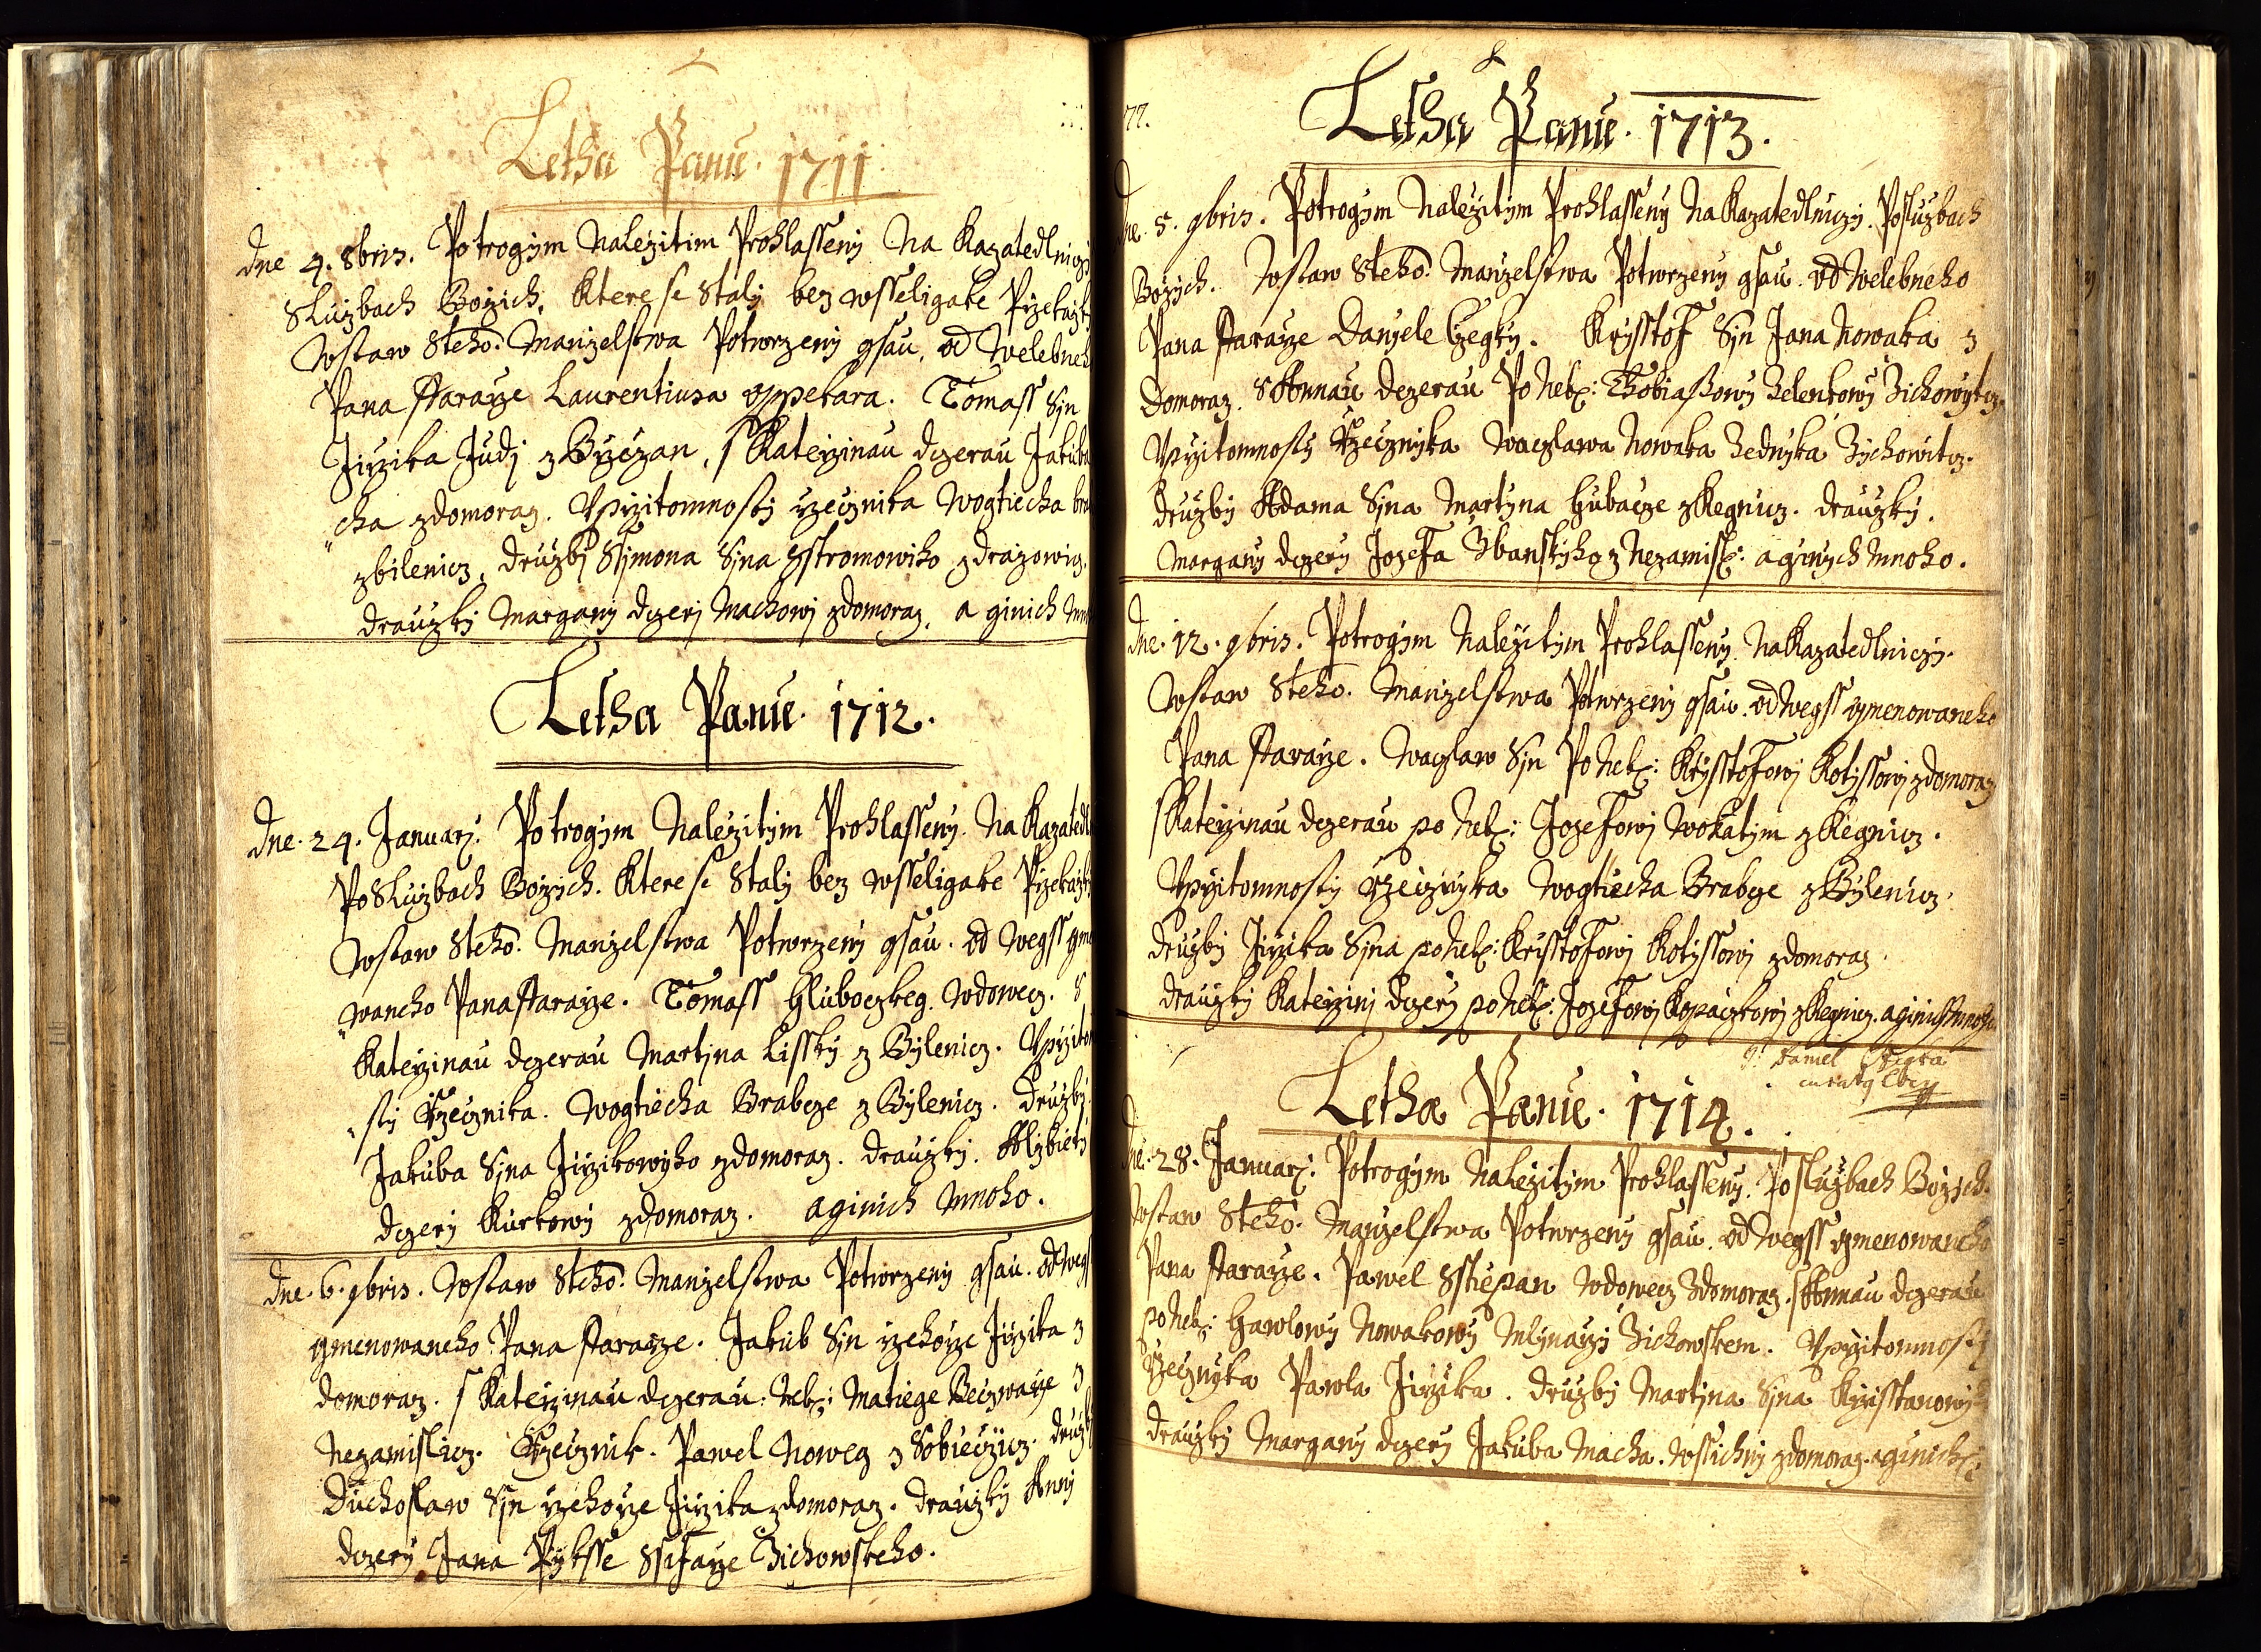 Letha Panu. 1711
Dne 4. 8bris. Potrogym Nalezitim Prohlasseny Na Kazatedlniczy
Sluzbach Bozich, ktere se staly bez wsseligake Przekazky
Wstaw Steho: Manzelstwa Potwrzeny gsau, od Welebneho
Pana ffararze Laurentiusa Oppekara. Tomass Syn
Jirzika Judy z Byczan, s Katerzinau dczerau Jakuba
"cha zdomoraz. Vprzitomnosty rzecznika Wogtiecha
zbilenicz, druzby Ssymona Syna Zstromowiho zdrazowicz.
drauzky Margany dczery Machowy zdomoraz, a ginich
Letha Panu. 1712.
Dne. 24. Januarj: Potrogym Nalezitym Prohlasseny. Na Kazatedl
Po Sluzbach Bozych. Ktere se staly bez wsseligake Przekazky
Wstaw Steho: Manzelstwa Potwrzeny gsau. od wegss gme
"waneho Pana ffararze. Tomass Hluboczkeg. Wdowecz. S
Katerzinau dczerau Martina Lissky z Bylenicz. Vprzitom
"sty Rzecznika. Wogtiecha Brabcze z Bylenicz. Druzby.
Jakuba Syna Jirzikowyho zdomoraz. drauzky. Alzbiety
dczery Kurkowy zdomoraz. aginich mnoho.
Dne. 6. 9bris. Wstaw Steho: Manzelstwa Potwrzeny gsau. od wegs
gmenowaneho Pana ffararze. Jakub Syn rzehorze Jirzika z
domoraz. s Katerzinau dczerau: Neb: Matiege Beczwarze z
Nezamislicz. Rzecznik. Pawel Noweg z Sobieczicz. druzb
Duchoslaw Syn rzehorze Jirzika zdomoraz. drauzky Anny
dczery Jana Pyksse Ssafarze Zichowskeho.
77.
Letha Panu. 1713.
Dne. 5. 9bris. Potrogym Nalezitym Prohlasseny Na Kazatedlniczy. Posluzbach
Bozych. Wstaw Steho: Manzelstwa Potwrzeny gsau. od Welebneho
Pana ffararze Danyele Czegky. Krysstof Syn Jana Nowaka z
Domoraz. s Annau dczerau Po Neb: Thobiassowy Zelenkowy Zichowytcz.
Vprzitomnosty Rzecznyka Waczlawa Nowaka Zednyka Zychowitcz.
druzby Adama Syna Martyna Hubacze zKegnicz. drauzky.
Margany dczery Jozefa Zbanskyho z Nezamisl: aginych mnoho.
Dne. 12. 9bris. Potrogym Nalezitym Prohlasseny Na Kazatedlniczy.
Wstaw Steho. Manzelstwa Potwrzeny gsau. od wegss gmenowaneho
Pana ffararze. Waczlaw Syn Po Neb: Krysstofowj Kotyssowj zdomoraz
s Katerzinau dczerau po Neb: Jozefowj Wokatym z Kegnicz.
Vprzitomnosty Rzecznyka Wogtiecha Brabcze z Bylenicz.
druzby Jirzika Syna po Neb: Krisstofowj Kotyssowj zdomoraz.
drauzky Katerziny dczery po Neb: Jozefowj Kopaczkowj z Kegnicz. aginich mnoho
Daniel Czegka
Letha Panu. 1714.
Dne. 28. Januarj: Potrogym Nalezitym Prohlasseny. Po sluzbach Bozych.
Wstaw Steho: Manzelstwa Potwrzeny gsau. od wegss gmenowaneho
Pana ffararze. Pawel Sstiepan Wdowecz Zdomoraz. s Annau dczerau
po Neb: Hawlowy Nowakowy Mlynarzy Zichowskem. Vprzitomnosty
Rzecznyka Pawla Jirzika. druzby Martyna Syna Krzisstanowyh
drauzky Margany dczery Jakuba Macha. Wssichny zdomoraz. aginich: